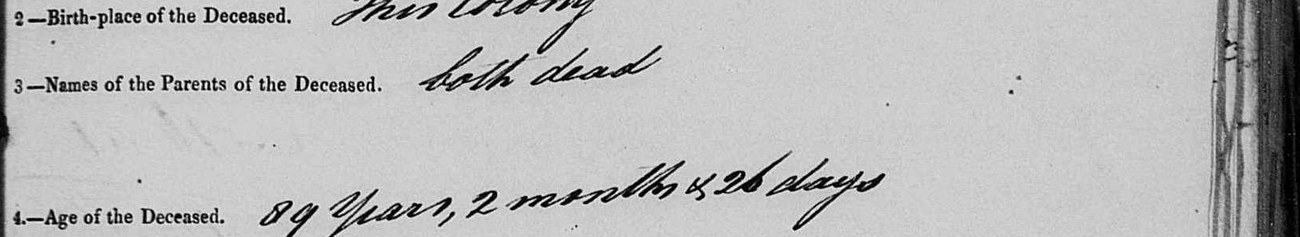 2—Birth-place of the Deceased. This Colony
3—Names of the Parents of the Deceased. both dead
4.—Age of the Deceased. 89 Years, 2 months & 26 days